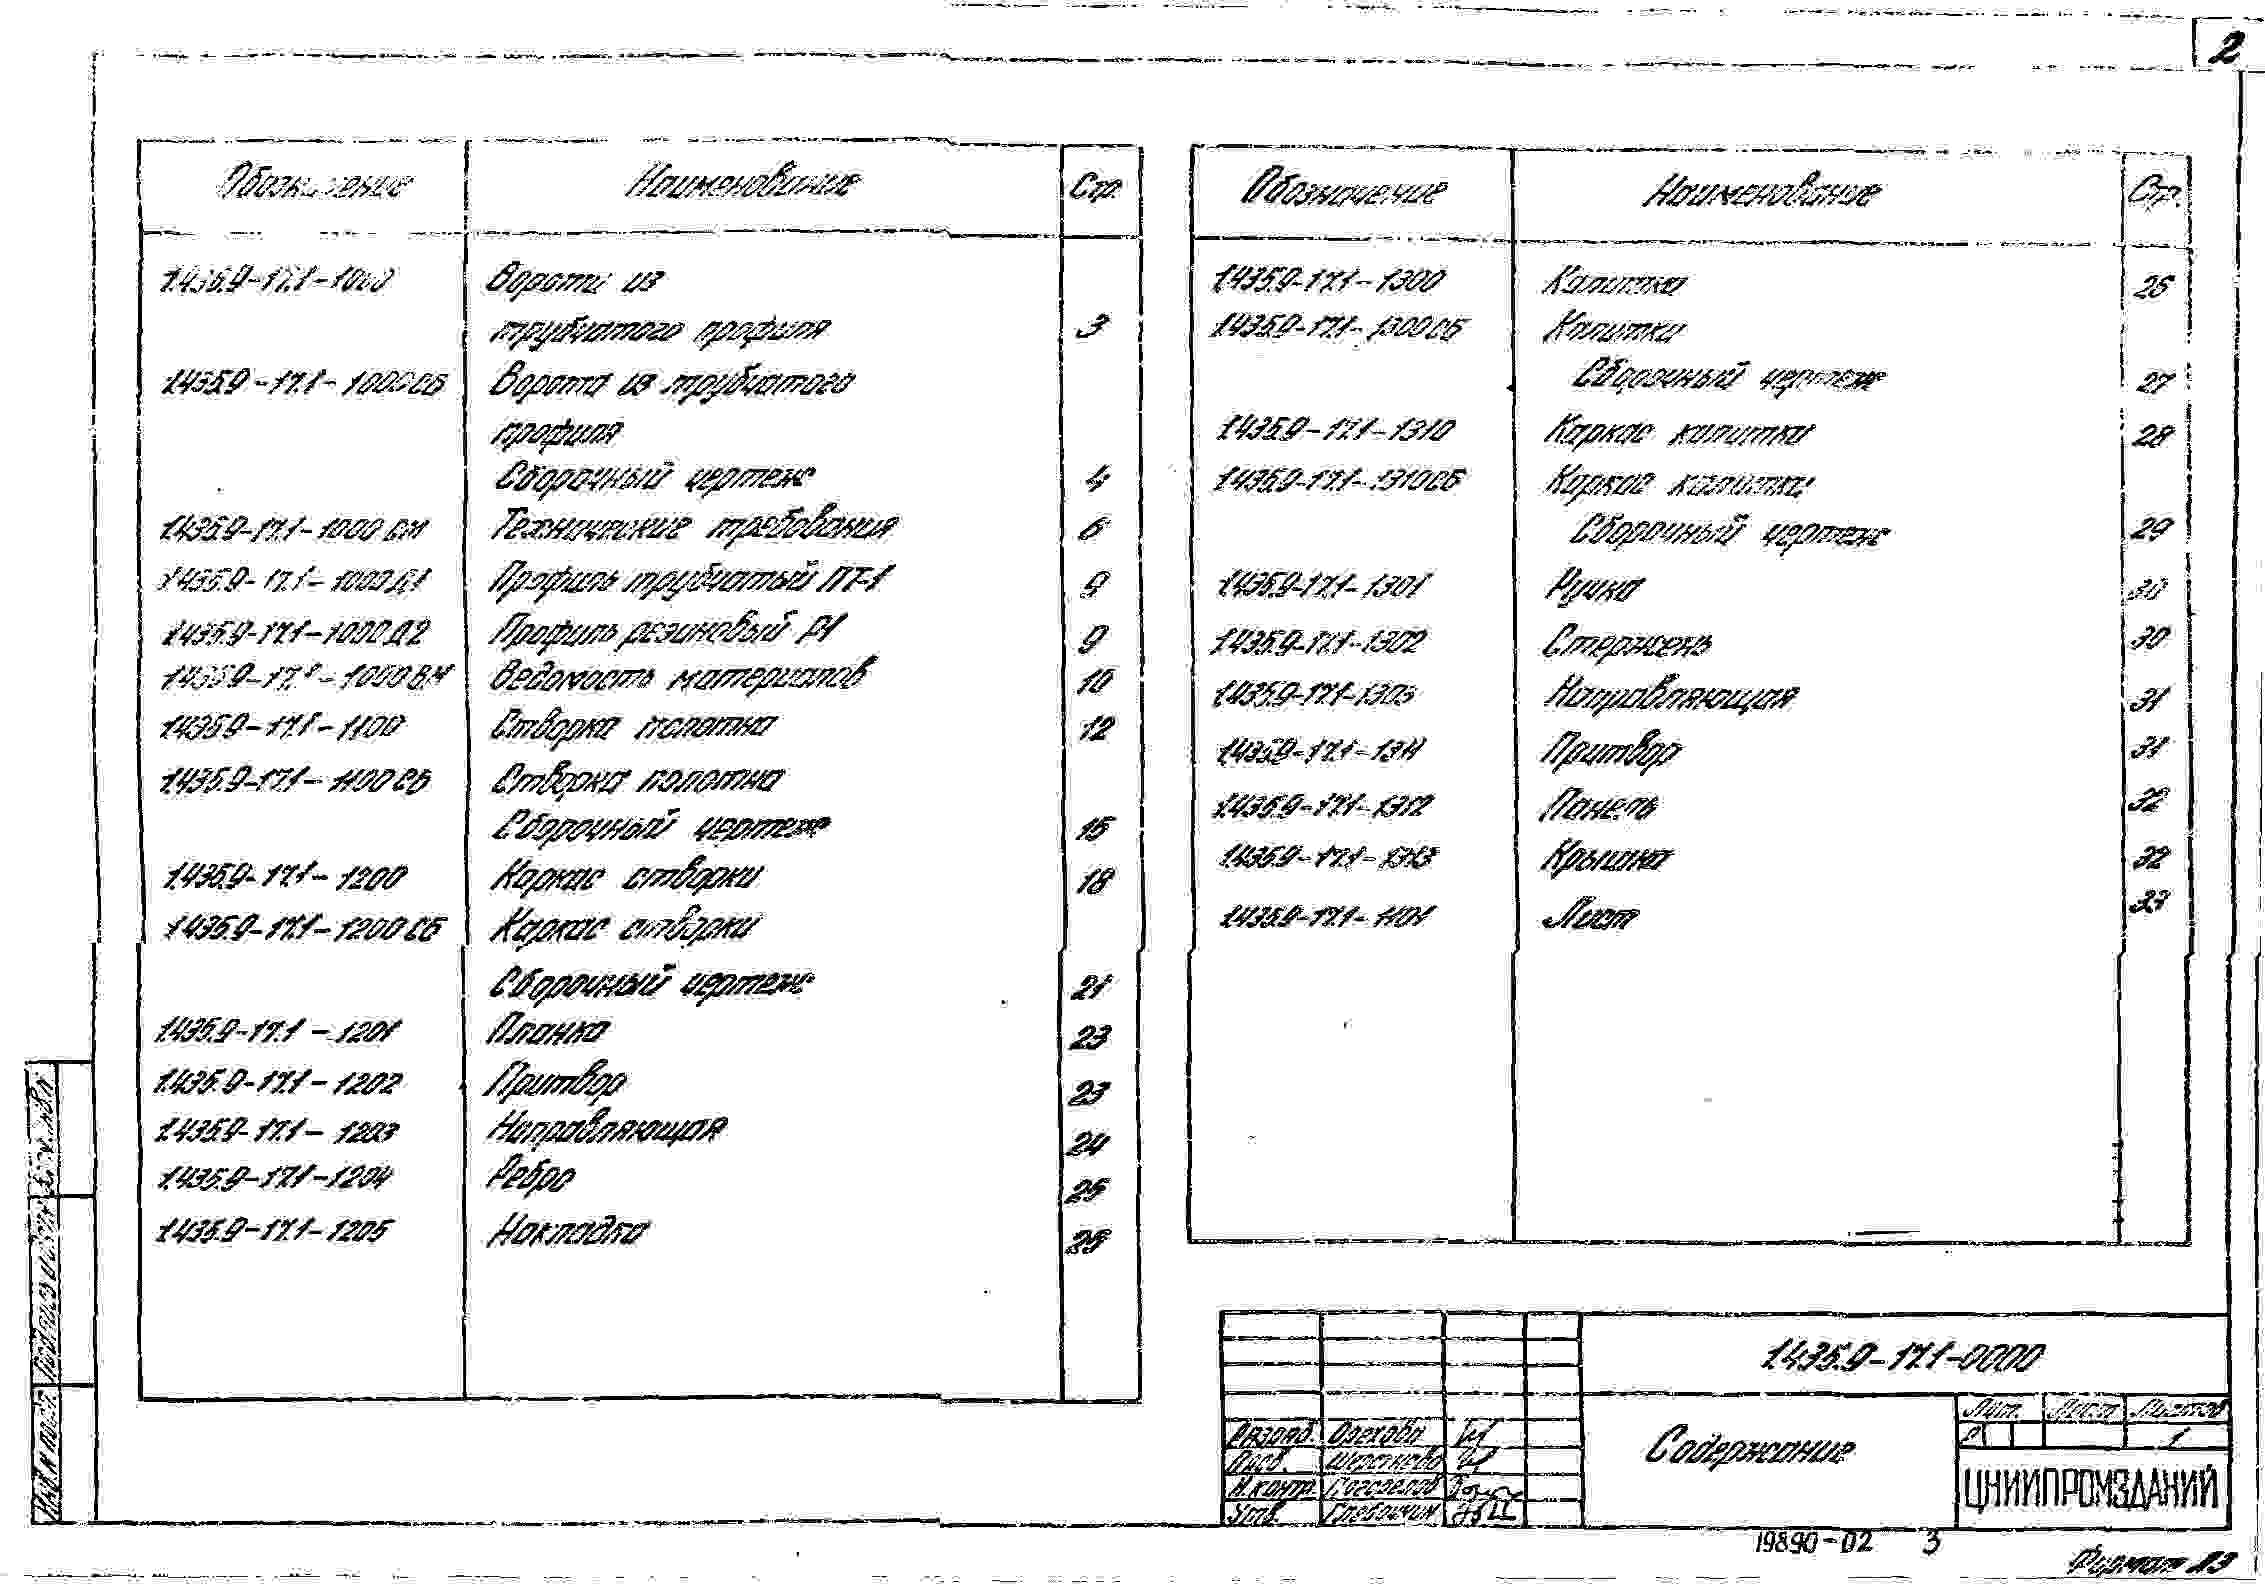 2
Обозначение Наименование Стр.
1.435.9-17.1-1000 Ворота из
трубчатого профиля 3
1.435.9-17.1-1000СБ Ворота из трубчатого
профиля
Сборочный чертеж 4
1.435.9-17.1-1000 Технические требования 6
1.435.9-17.1-1000Д1 Профиль трубчатый ПТ-1 9
1.435.9-17.1-1000Д2 Профиль резиновый Р1 9
Ведомость материалов 10
1.435.9-17.1-1100 Створка полотна 12
1.435.9-17.1-1100СБ Створка полотна
Сборочный чертеж 15
1.435.9-17.1-1200 Каркас створки 18
1.435.9-17.1-1200СБ Каркас створки
Сборочный чертеж 21
1.435.9-17.1-1201 Планка 23
1.435.9-17.1-1202 Притвор 23
1.435.9-17.1-1203 Направляющая 24
1.435.9-17.1-1204 Ребро 25
1.435.9-17.1-1205 Накладка 25
Обозначение Наименование Стр.
1.435.9-17.1-1300 Калитка 26
1.435.9-17.1-1300СБ Калитка
Сборочный чертеж 27
1.435.9-17.1-1310 Каркас калитки 28
1.435.9-17.1-1310СБ Каркас калитки
Сборочный чертеж 29
1.435.9-17.1-1301 Ручка 30
1.435.9-17.1-1302 Стержень 30
1.435.9-17.1-1303 Направляющая 31
1.435.9-17.1-1311 Притвор 31
1.435.9-17.1-1312 Панель 32
1.435.9-17.1-1313 Крышка 32
1.435.9-17.1-1101 Лист 33
1.435.9-17.1-0000
Разраб. Орехова
Н.контр.
Утв.
Содержание
Лит. Лист Листов
Р 1
ЦНИИПРОМЗДАНИЙ
19890-02 3
Формат А3
Инв.№ подл. Подпись и дата